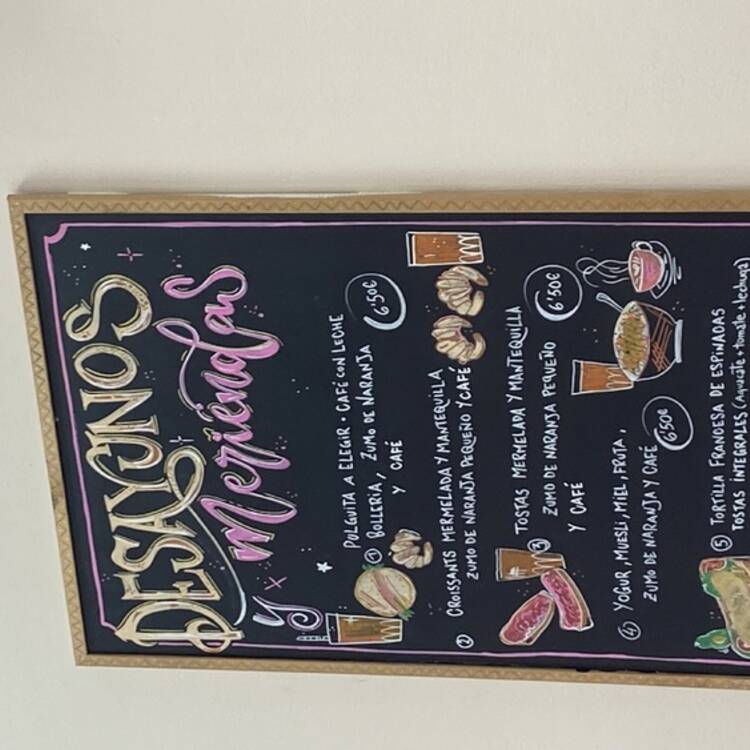 DESAYUNOS
y Meriendas
PULGUITA A ELEGIR + CAFÉ CON LECHE
① BOLLERIA, ZUMO DE NARANJA
Y CAFÉ
6'50€
② CROISSANTS MERMELADA Y MANTEQUILLA
ZUMO DE NARANJA PEQUEÑO Y CAFÉ
TOSTAS MERMELADA Y MANTEQUILLA
③ ZUMO DE NARANJA PEQUEÑO
Y CAFÉ
6'50€
④ YOGUR, MUESLI, MIEL, FRUTA,
ZUMO DE NARANJA Y CAFÉ
6'50€
⑤ TORTILLA FRANCESA DE ESPINACAS
TOSTAS INTEGRALES (Aguacate + tomate + lechuga)